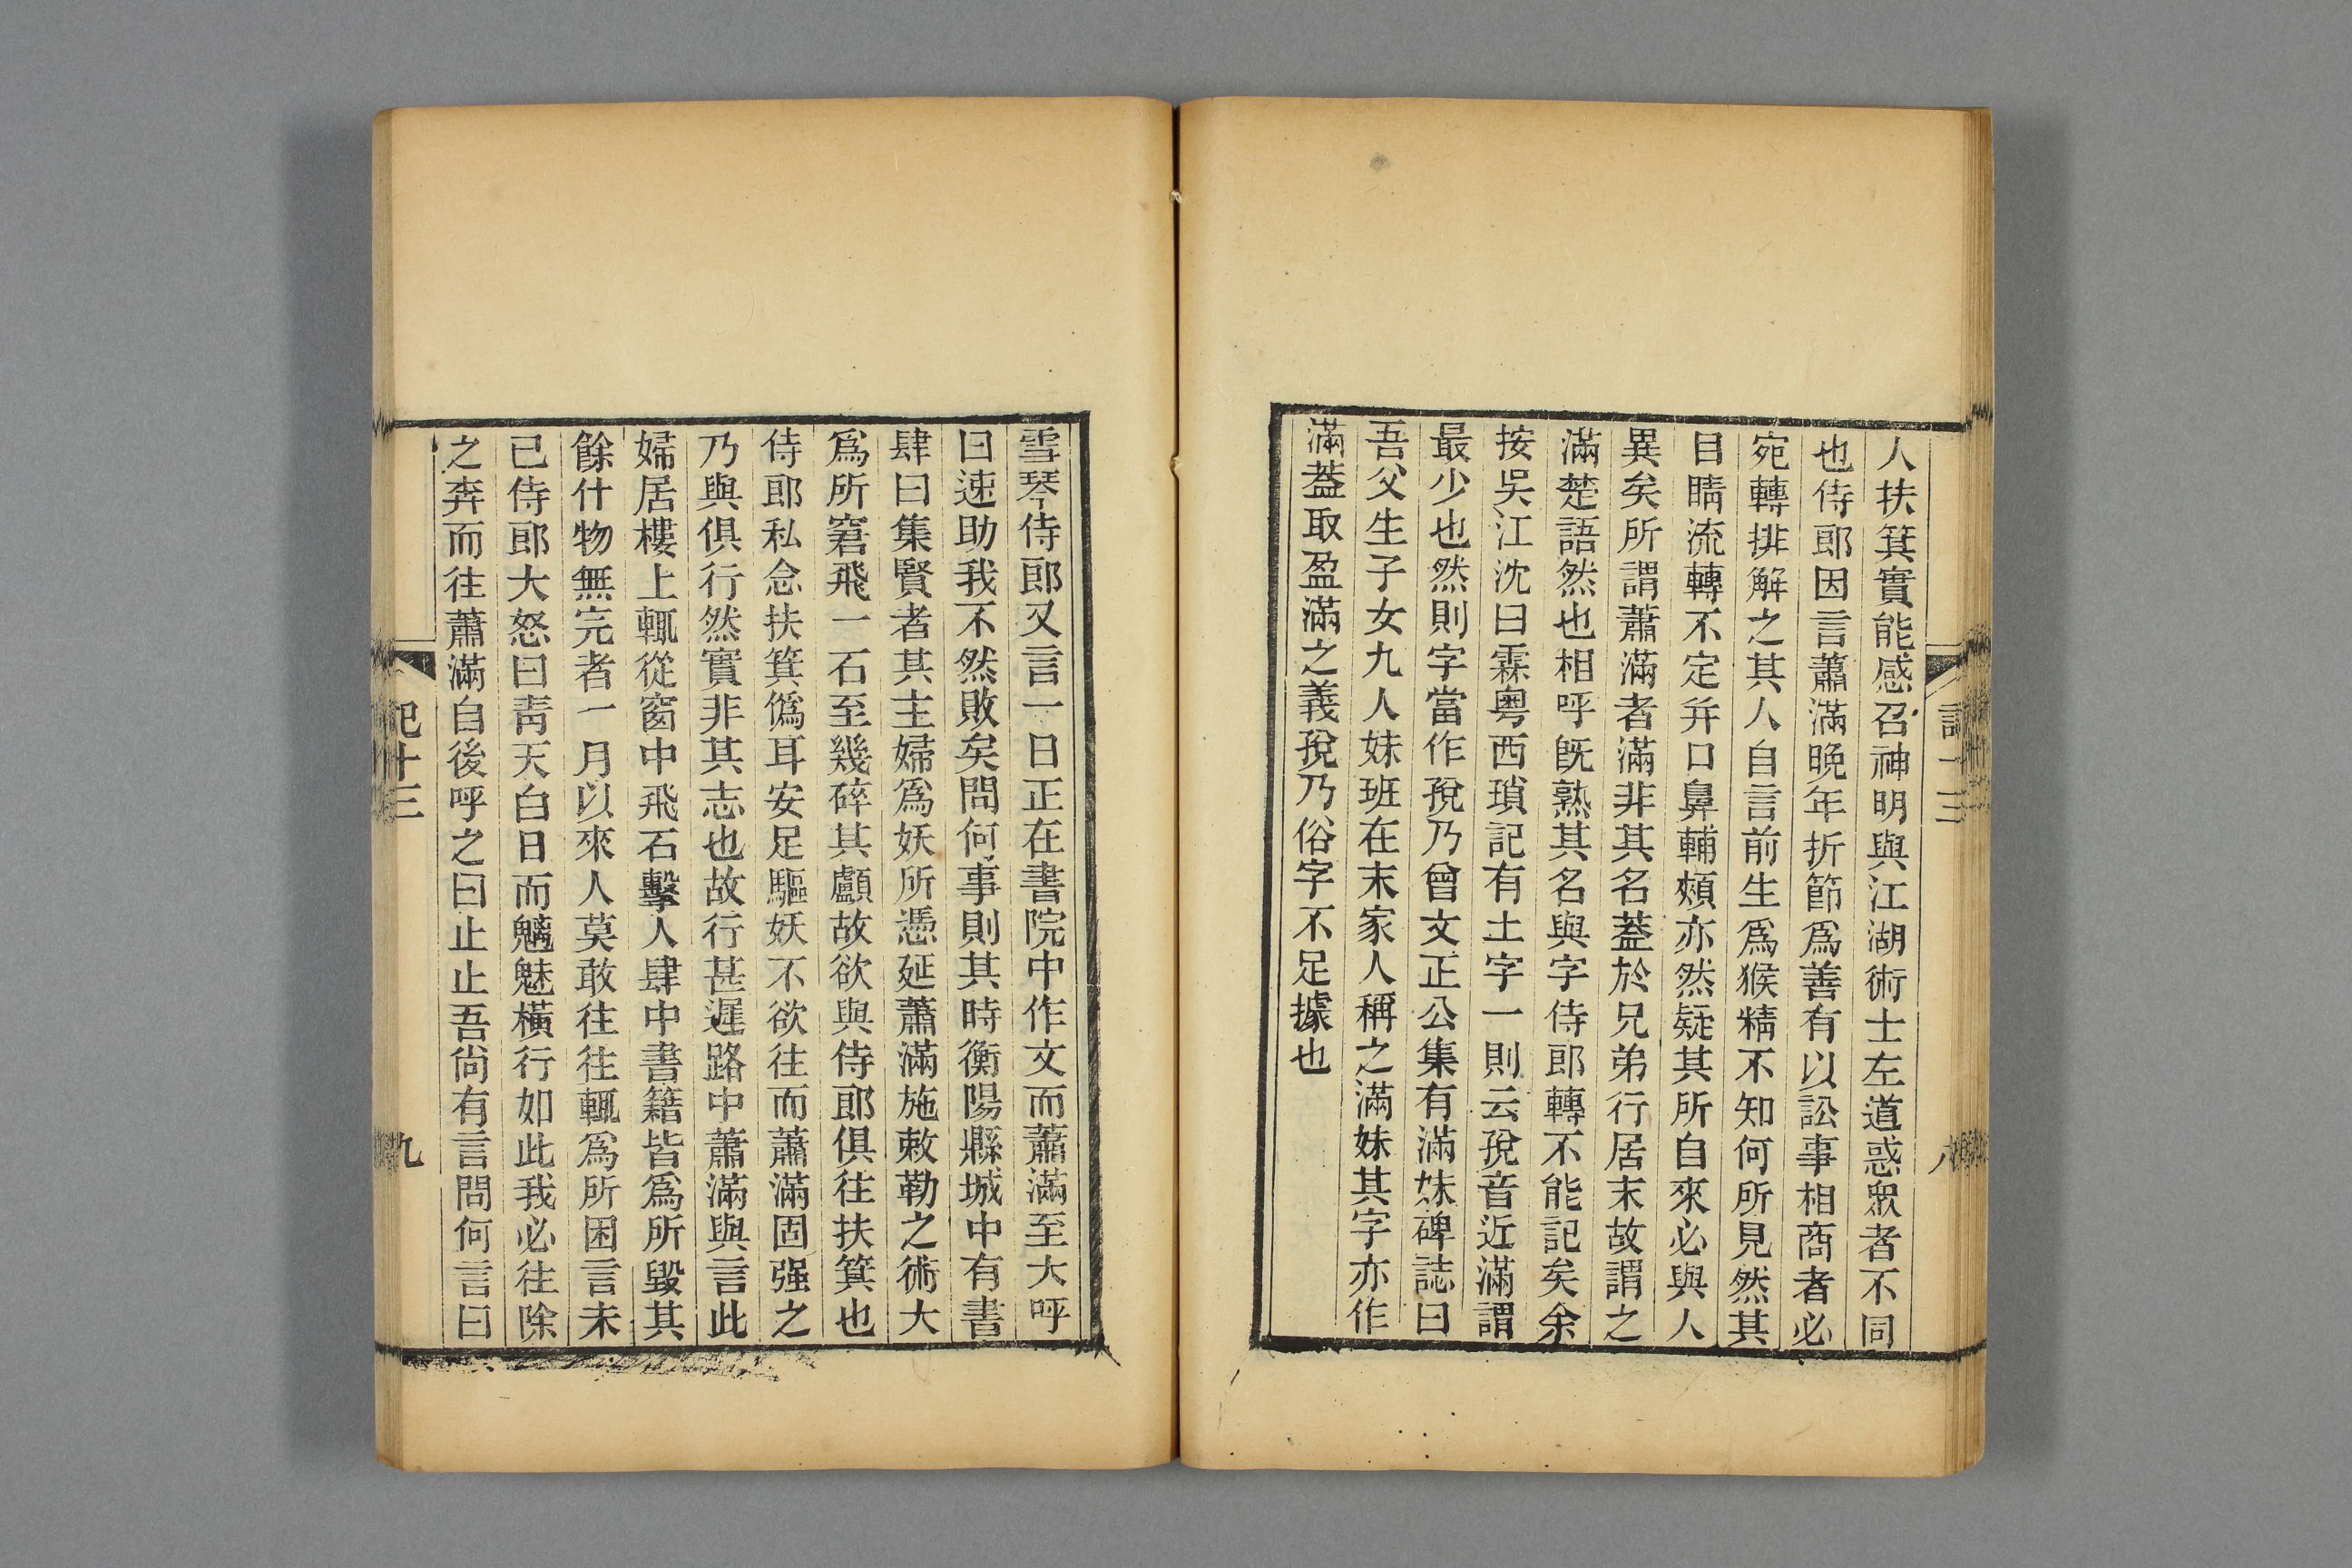 人扶箕實能感召神明與江湖術士左道惑眾者不同
也侍郎因言蕭滿晚年折節爲善有以訟事相商者必
宛轉排解之其人自言前生爲猴精不知何所見然其
目睛流轉不定幷口鼻輔頰亦然疑其所自來必與人
異矣所謂蕭滿者滿非其名蓋於兄弟行居末故謂之
滿楚語然也相呼旣熟其名與字侍郎轉不能記矣余
按吳江沈曰霖粵西瑣記有土字一則云㜽音近滿謂
最少也然則字當作㜽乃曾文正公集有滿妹碑誌曰
吾父生子女九人妹班在末家人稱之滿妹其字亦作
滿蓋取盈滿之義㜽乃俗字不足據也
八
雪琴侍郎又言一日正在書院中作文而蕭滿至大呼
曰速助我不然敗矣問何事則其時衡陽縣城中有書
肆曰集賢者其主婦爲妖所憑延蕭滿施敕勒之術大
爲所窘飛一石至幾碎其顱故欲與侍郎俱往扶箕也
侍郎私念扶箕僞耳安足驅妖不欲往而蕭滿固强之
乃與俱行然實非其志也故行甚遲路中蕭滿與言此
婦居樓上輒從窗中飛石擊人肆中書籍皆爲所毀其
餘什物無完者一月以來人莫敢往往輒爲所困言未
已侍郎大怒曰靑天白日而魑魅橫行如此我必往除
之奔而往蕭滿自後呼之曰止止吾尙有言問何言曰
記十三
九